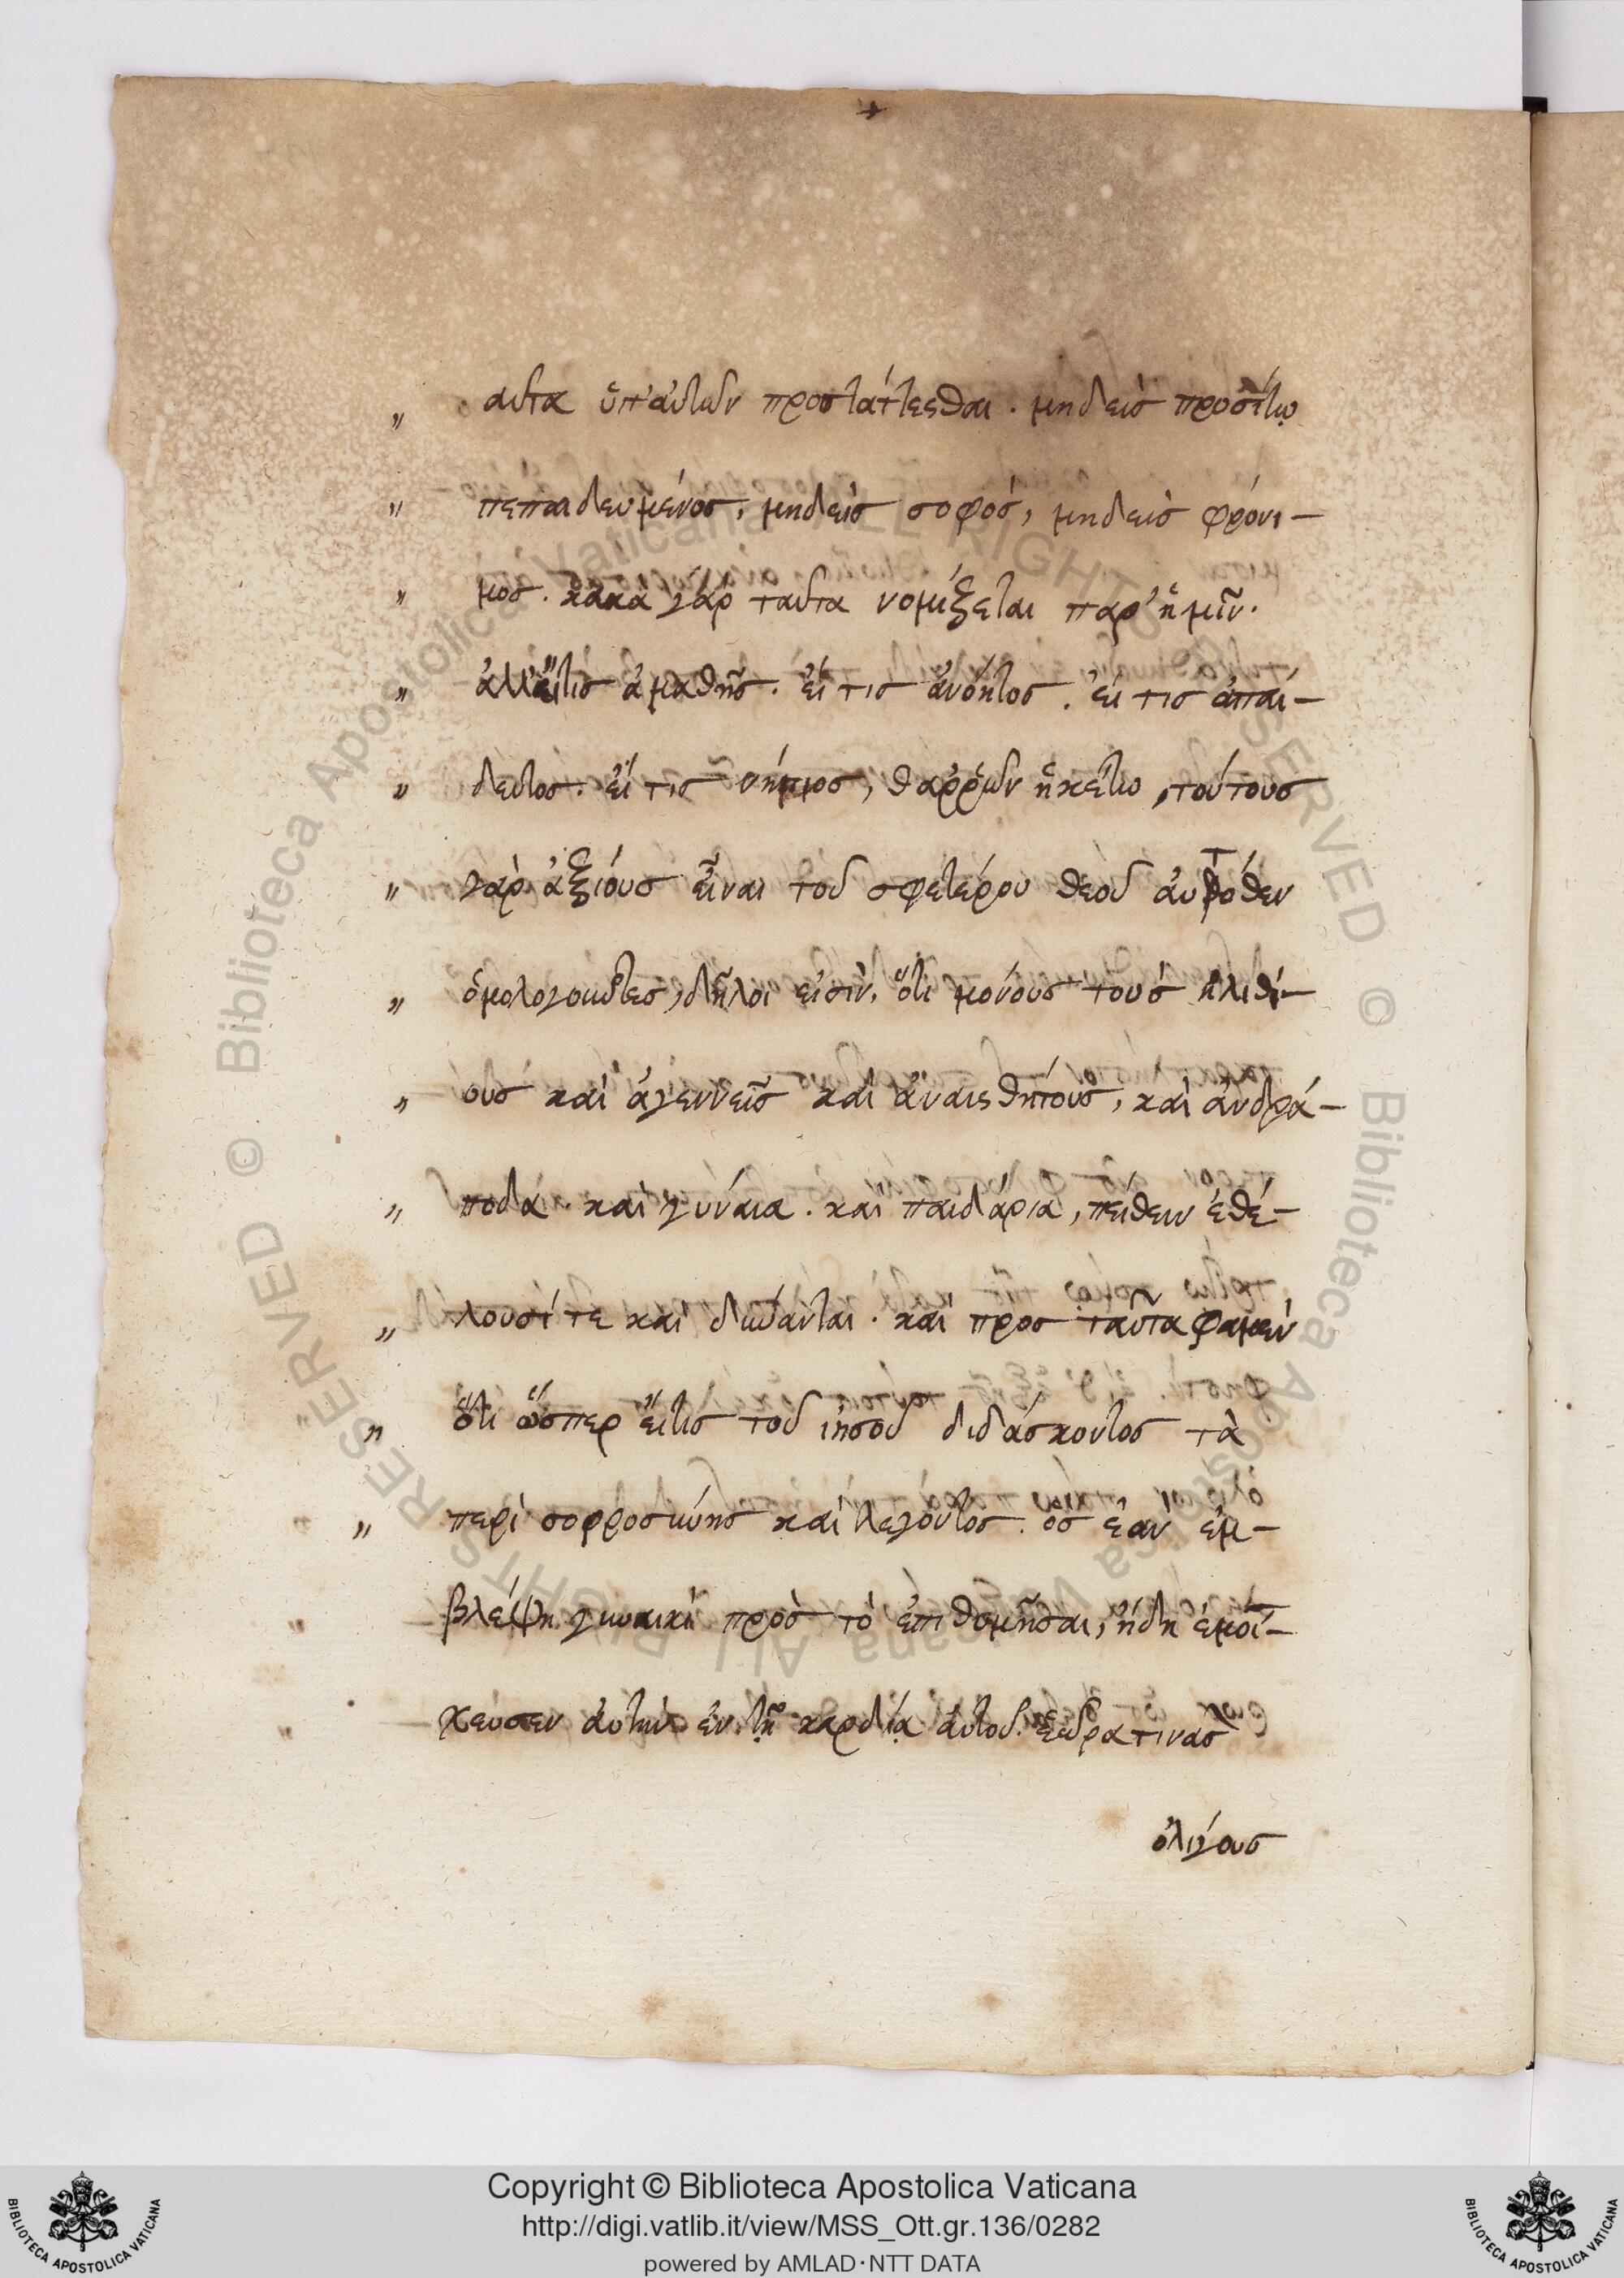 „ αυτα ὑπ' ἀυτῶν προστάττεςθαι · μηδεὶσ προσίτω
„ πεπαιδευμένοσ, μηδεὶσ σοφόσ, μηδεὶσ φρόνι-
„ μοσ · κακὰ γὰρ ταῦτα νομίζεται παρ' ἡμῖν ·
„ ἀλλ' ἔιτισ ἀμαθὴσ · ἔι τισ ἀνόητοσ · ἔι τισ ἀπαί-
„ δευτοσ · ἔι τισ νήπιοσ, θαῤῥῶν ἡκέτω, τούτουσ
„ γὰρ ἀξιόυσ εἶναι τοῦ σφετέρου θεοῦ ἀυτόθεν
„ ὁμολογουῦτεσ, δῆλοι εἰσὶν, ὅτι μονόυσ τοὺσ ἠλιθί-
„ ουσ καὶ ἀγεννεῖσ καὶ ἀναιςθήτουσ, καὶ ἀνδρά-
„ ποδα · καὶ γύναια · καὶ παιδάρια, πείθειν ἐθέ-
„ λουσί τε καὶ δύνανται · καὶ προσ ταῦτα φαμὲν
„ ὅτι ὥσπερ ἔιτισ τοῦ ἰησοῦ διδάσκοντοσ τὰ
„ περὶ σοφροσύνησ καὶ λεγόντοσ · ὃσ ἐὰν ἐμ-
βλέψη γυναικὶ πρὸσ τὸ ἐπιθυμῆσαι, ἤδη ἐμοί-
χευσεν ἀυτὴν ἐν τῇ καρδίᾳ ἀυτοῦ. ἑώρα τινασ
ὀλίγουσ
Copyright © Biblioteca Apostolica Vaticana
http://digi.vatlib.it/view/MSS_Ott.gr.136/0282
powered by AMLAD·NTT DATA
BIBLIOTECA APOSTOLICA VATICANA
BIBLIOTECA APOSTOLICA VATICANA
© Biblioteca Apostolica Vaticana ALL RIGHTS RESERVED
© Biblioteca Apostolica Vaticana ALL RIGHTS RESERVED